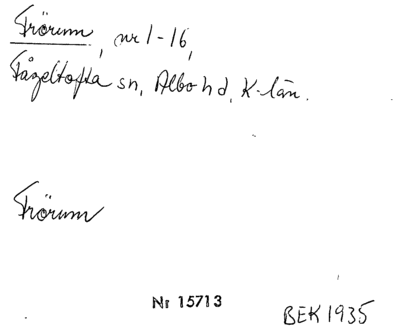 Frörum, nr 1-16,
Fågeltofta sn, Albo hd, K-län.
Frörum
Nr 15713
BEK 1935